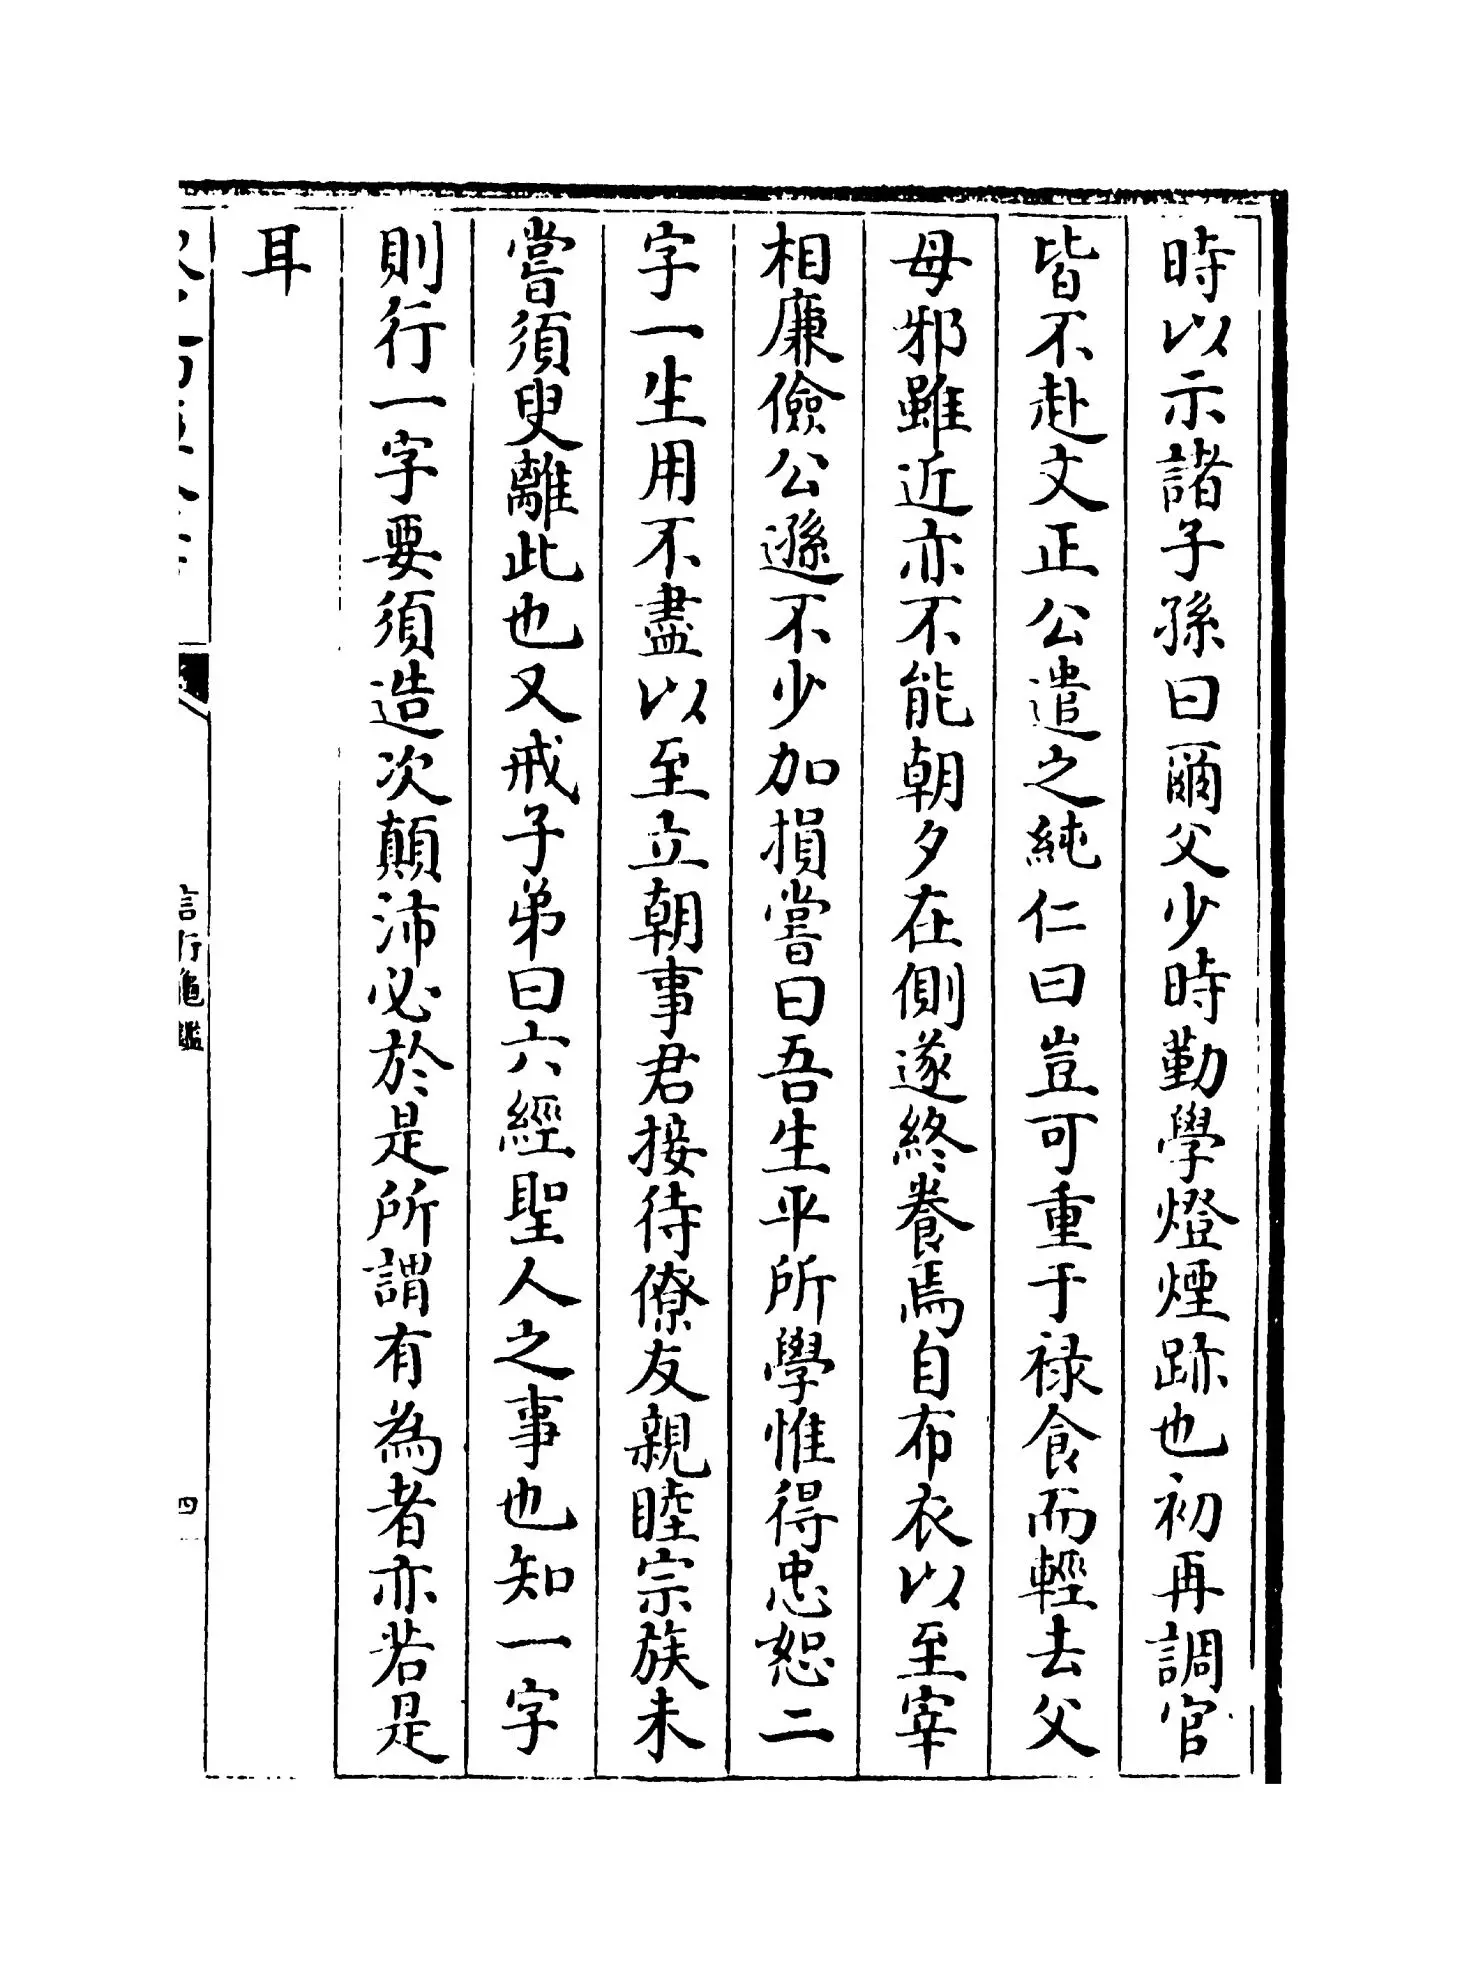 時以示諸子孫曰爾父少時勤學燈煙跡也初再調官
皆不赴文正公遣之純仁曰豈可重于祿食而輕去父
母邪雖近亦不能朝夕在側遂終養焉自布衣以至宰
相廉儉公遜不少加損嘗曰吾生平所學惟得忠恕二
字一生用不盡以至立朝事君接待僚友親睦宗族未
嘗須臾離此也又戒子弟曰六經聖人之事也知一字
則行一字要須造次顛沛必於是所謂有為者亦若是
耳
言行龜鑑
四